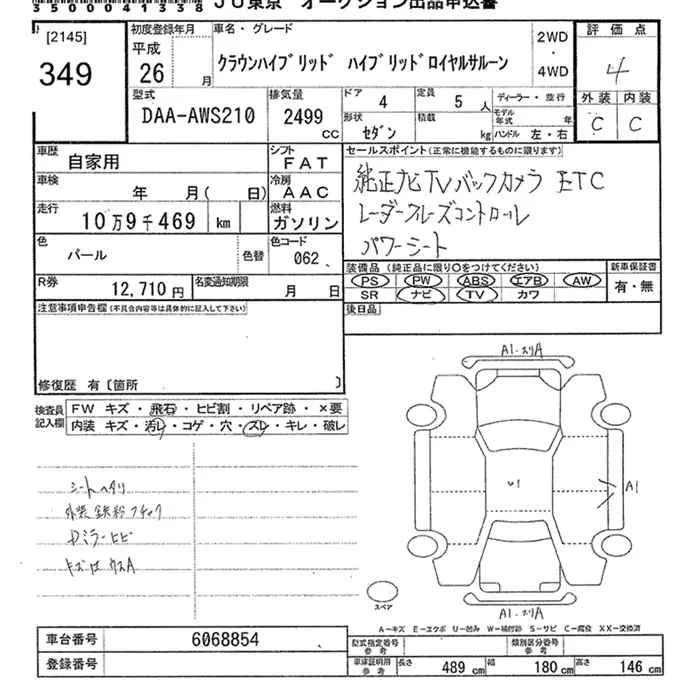 35000041338 JU東京 オークション出品申込書
[2145]
349
初度登録年月
平成
26 月
車名・グレード
クラウンハイブリッド ハイブリッドロイヤルサルーン
2WD
・
4WD
評価点
4
外装 内装
C C
型式
DAA-AWS210
排気量
2499
CC
ドア 4
定員 5 人
ディーラー・並行
形状 セダン
積載 kg
モデル年式 年
ハンドル 左・右
車歴 自家用
シフト FAT
車検 年 月( 日)
冷房 AAC
走行 10万9千469 km
燃料 ガソリン
色 パール
色替
色コード 062
R券 12,710円
名変通知期限 月 日
セールスポイント(正常に機能するものに限ります)
純正ナビTVバックカメラ ETC
レーダークルーズコントロール
パワーシート
装備品(純正品に限り〇をつけてください)
新車保証書
PS PW ABS エアB AW
SR ナビ TV カワ
有・無
後日品
注意事項申告欄(不具合内容等は具体的に記入して下さい)
修復歴 有〔箇所 〕
検査員記入欄
FW キズ・飛石・ヒビ割・リペア跡・×要
内装 キズ・汚レ・コゲ・穴・スレ・キレ・破レ
シートヘタリ
外装 鉄粉
ミラーヒビ
A1
A1
A1
スペア
A-キズ E-エクボ U-凹み W-補修跡 S-サビ C-腐食 XX-交換済
車台番号 6068854
登録番号
型式指定番号
参考
類別区分番号
参考
車庫証明用
参考
長さ 489 cm
幅 180 cm
高さ 146 cm